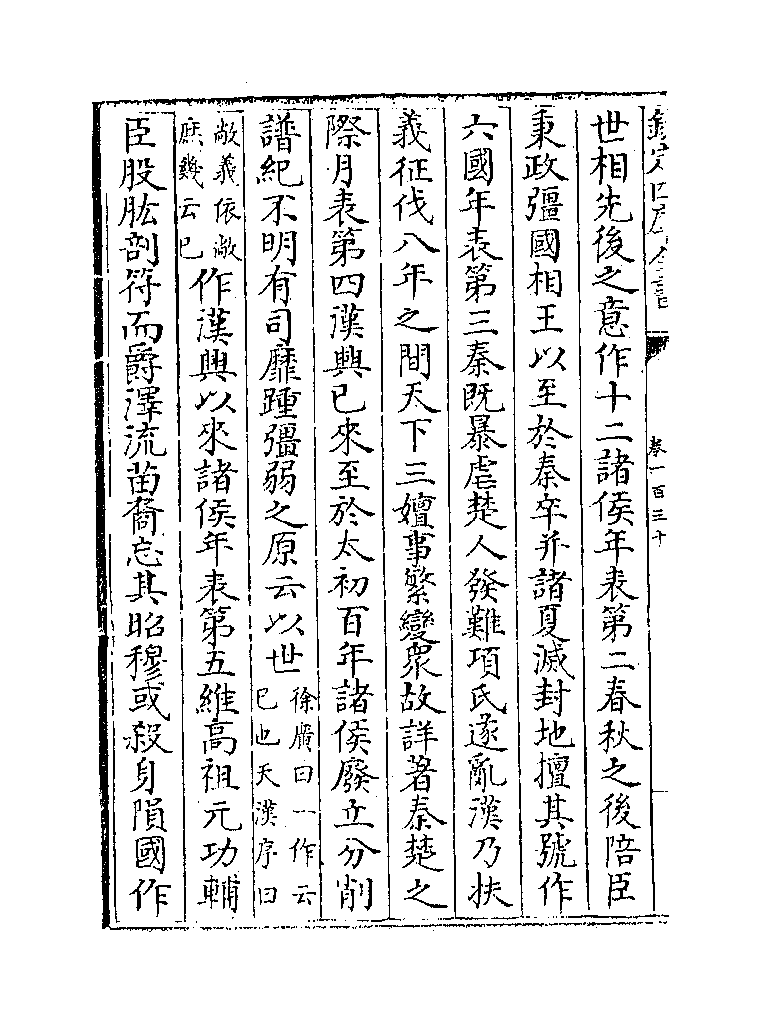 欽定四庫全書
卷一百三十
世相先後之意作十二諸侯年表第二春秋之後陪臣
秉政彊國相王以至於秦卒并諸夏滅封地擅其號作
六國年表第三秦既暴虐楚人發難項氏遂亂漢乃扶
義征伐八年之間天下三嬗事繁變眾故詳著秦楚之
際月表第四漢興已來至於太初百年諸侯廢立分削
譜紀不明有司靡踵彊弱之原云以世徐廣曰一作云已也天漢序曰
敞義依敞庶幾云已作漢興以來諸侯年表第五維高祖元功輔
臣股肱剖符而爵澤流苗裔忘其昭穆或殺身隕國作